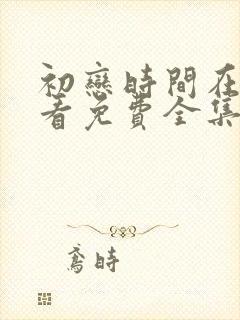 初戀時間在
看免費全集
鳶時